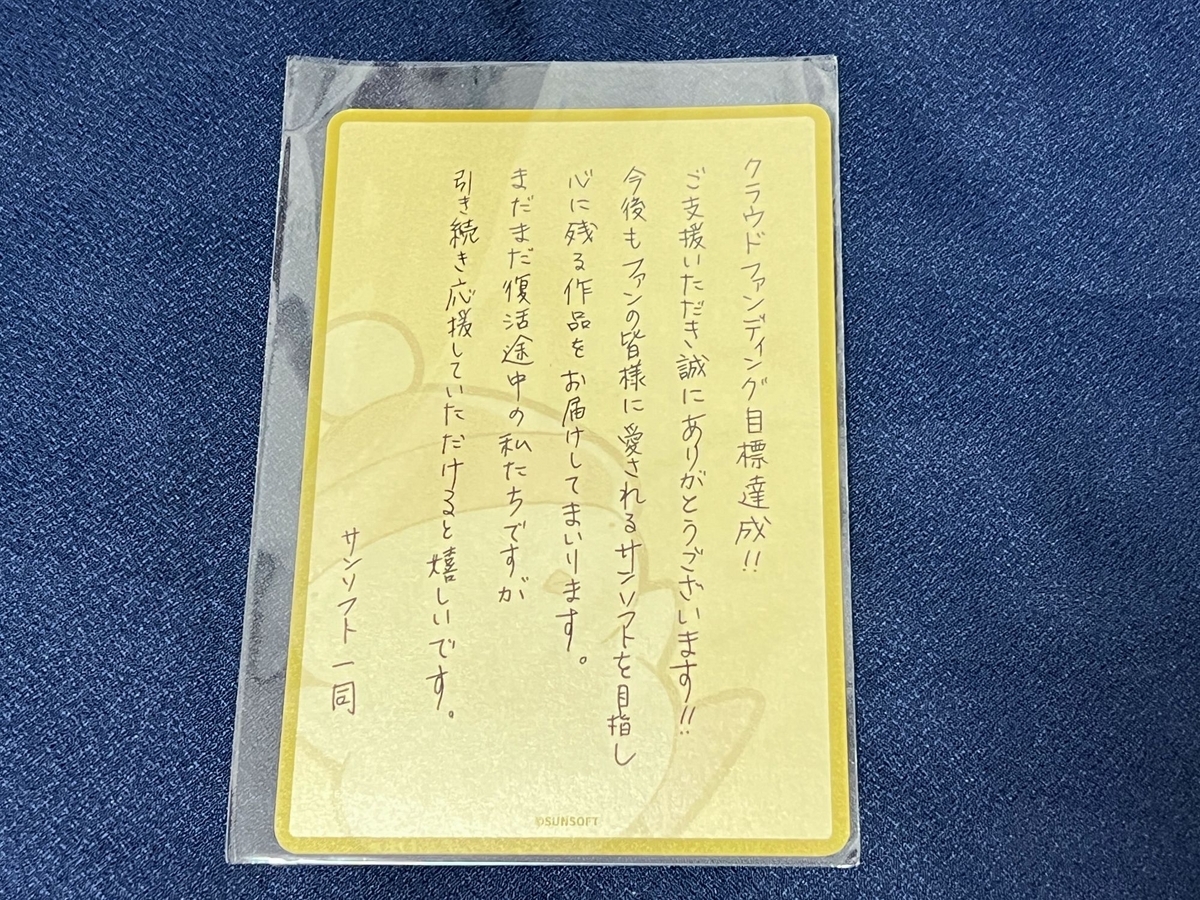 クラウドファンディング目標達成!!
ご支援いただき誠にありがとうございます!!
今後もファンの皆様に愛されるサンソフトを目指し
心に残る作品をお届けしてまいります。
まだまだ復活途中の私たちですが
引き続き応援していただけると嬉しいです。
サンソフト一同
©SUNSOFT